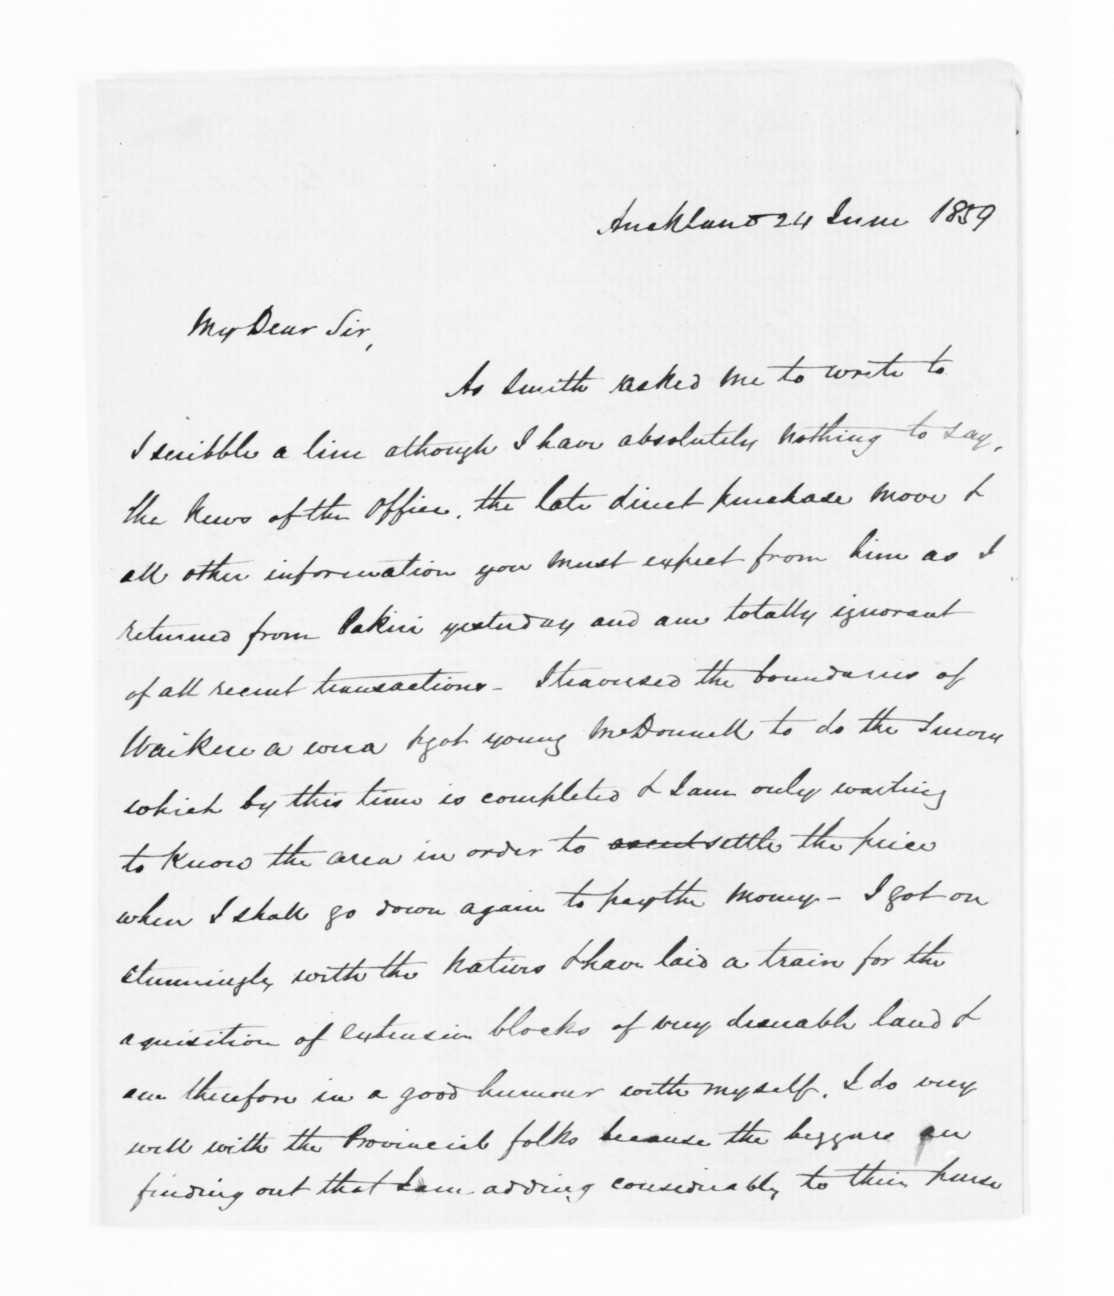 Auckland 24 June 1859
My Dear Sir,
As Smith asked me to write to
I scribble a line although I have absolutely nothing to say,
the News of the Office, the late direct purchase move &
all other information you must expect from him as I
returned from Pakiri yesterday and am totally ignorant
of all recent transactions - I traversed the boundaries of
& got young McDonnell to do the Survey
which by this time is completed & I am only waiting
to know the area in order to settle the price
when I shall go down again to pay the money - I got on
stunningly with the Natives & have laid a train for the
aquisition of extensive blocks of very desirable land &
am therefore in a good humour with myself. I do very
well with the Provincial folks because the beggars are
finding out that I am adding considerably to their purse